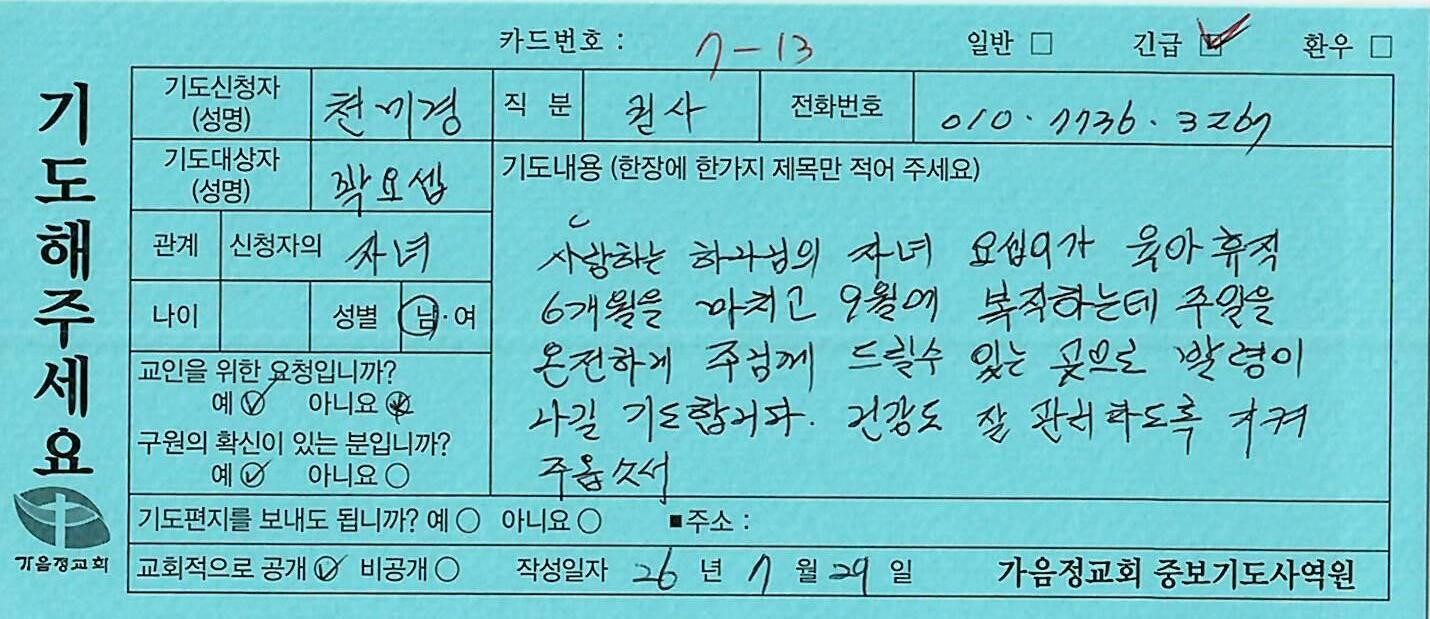 카드번호 : 7-13 일반 □ 긴급 ☑ 환우 □
기도해주세요
기도신청자 (성명) 천미경 직 분 권사 전화번호 010. 7736. 3267
기도대상자 (성명) 곽요셉
관계 신청자의 자녀
나이 성별 남·여
교인을 위한 요청입니까?
예 아니요
구원의 확신이 있는 분입니까?
예 아니요
기도내용 (한장에 한가지 제목만 적어 주세요)
사랑하는 하나님의 자녀 요셉이가 육아휴직
6개월을 마치고 9월에 복직하는데 주일을
온전하게 주님께 드릴수 있는 곳으로 발령이
나길 기도합니다. 건강도 잘 관리하도록 지켜
주옵소서
기도편지를 보내도 됩니까? 예 아니요 ■주소 :
교회적으로 공개 비공개 작성일자 26 년 7 월 29 일 가음정교회 중보기도사역원
가음정교회